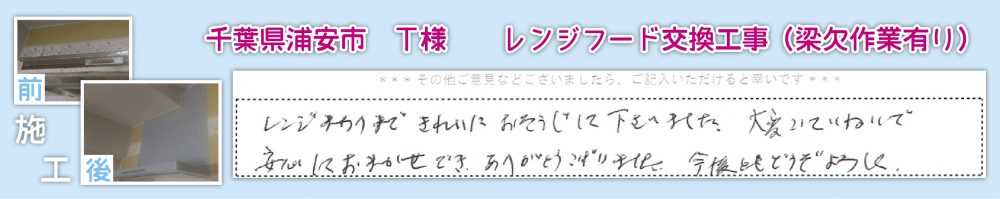 千葉県浦安市　T様　　レンジフード交換工事（梁欠作業有り）
＊＊＊その他ご意見などございましたら、ご記入いただけると幸いです＊＊＊
レンジまわりまで きれいに おそうじして下さいました。大変ていねいで
安心しておまかせでき、ありがとうございました。今後ともどうぞよろしく。
前
施工
後